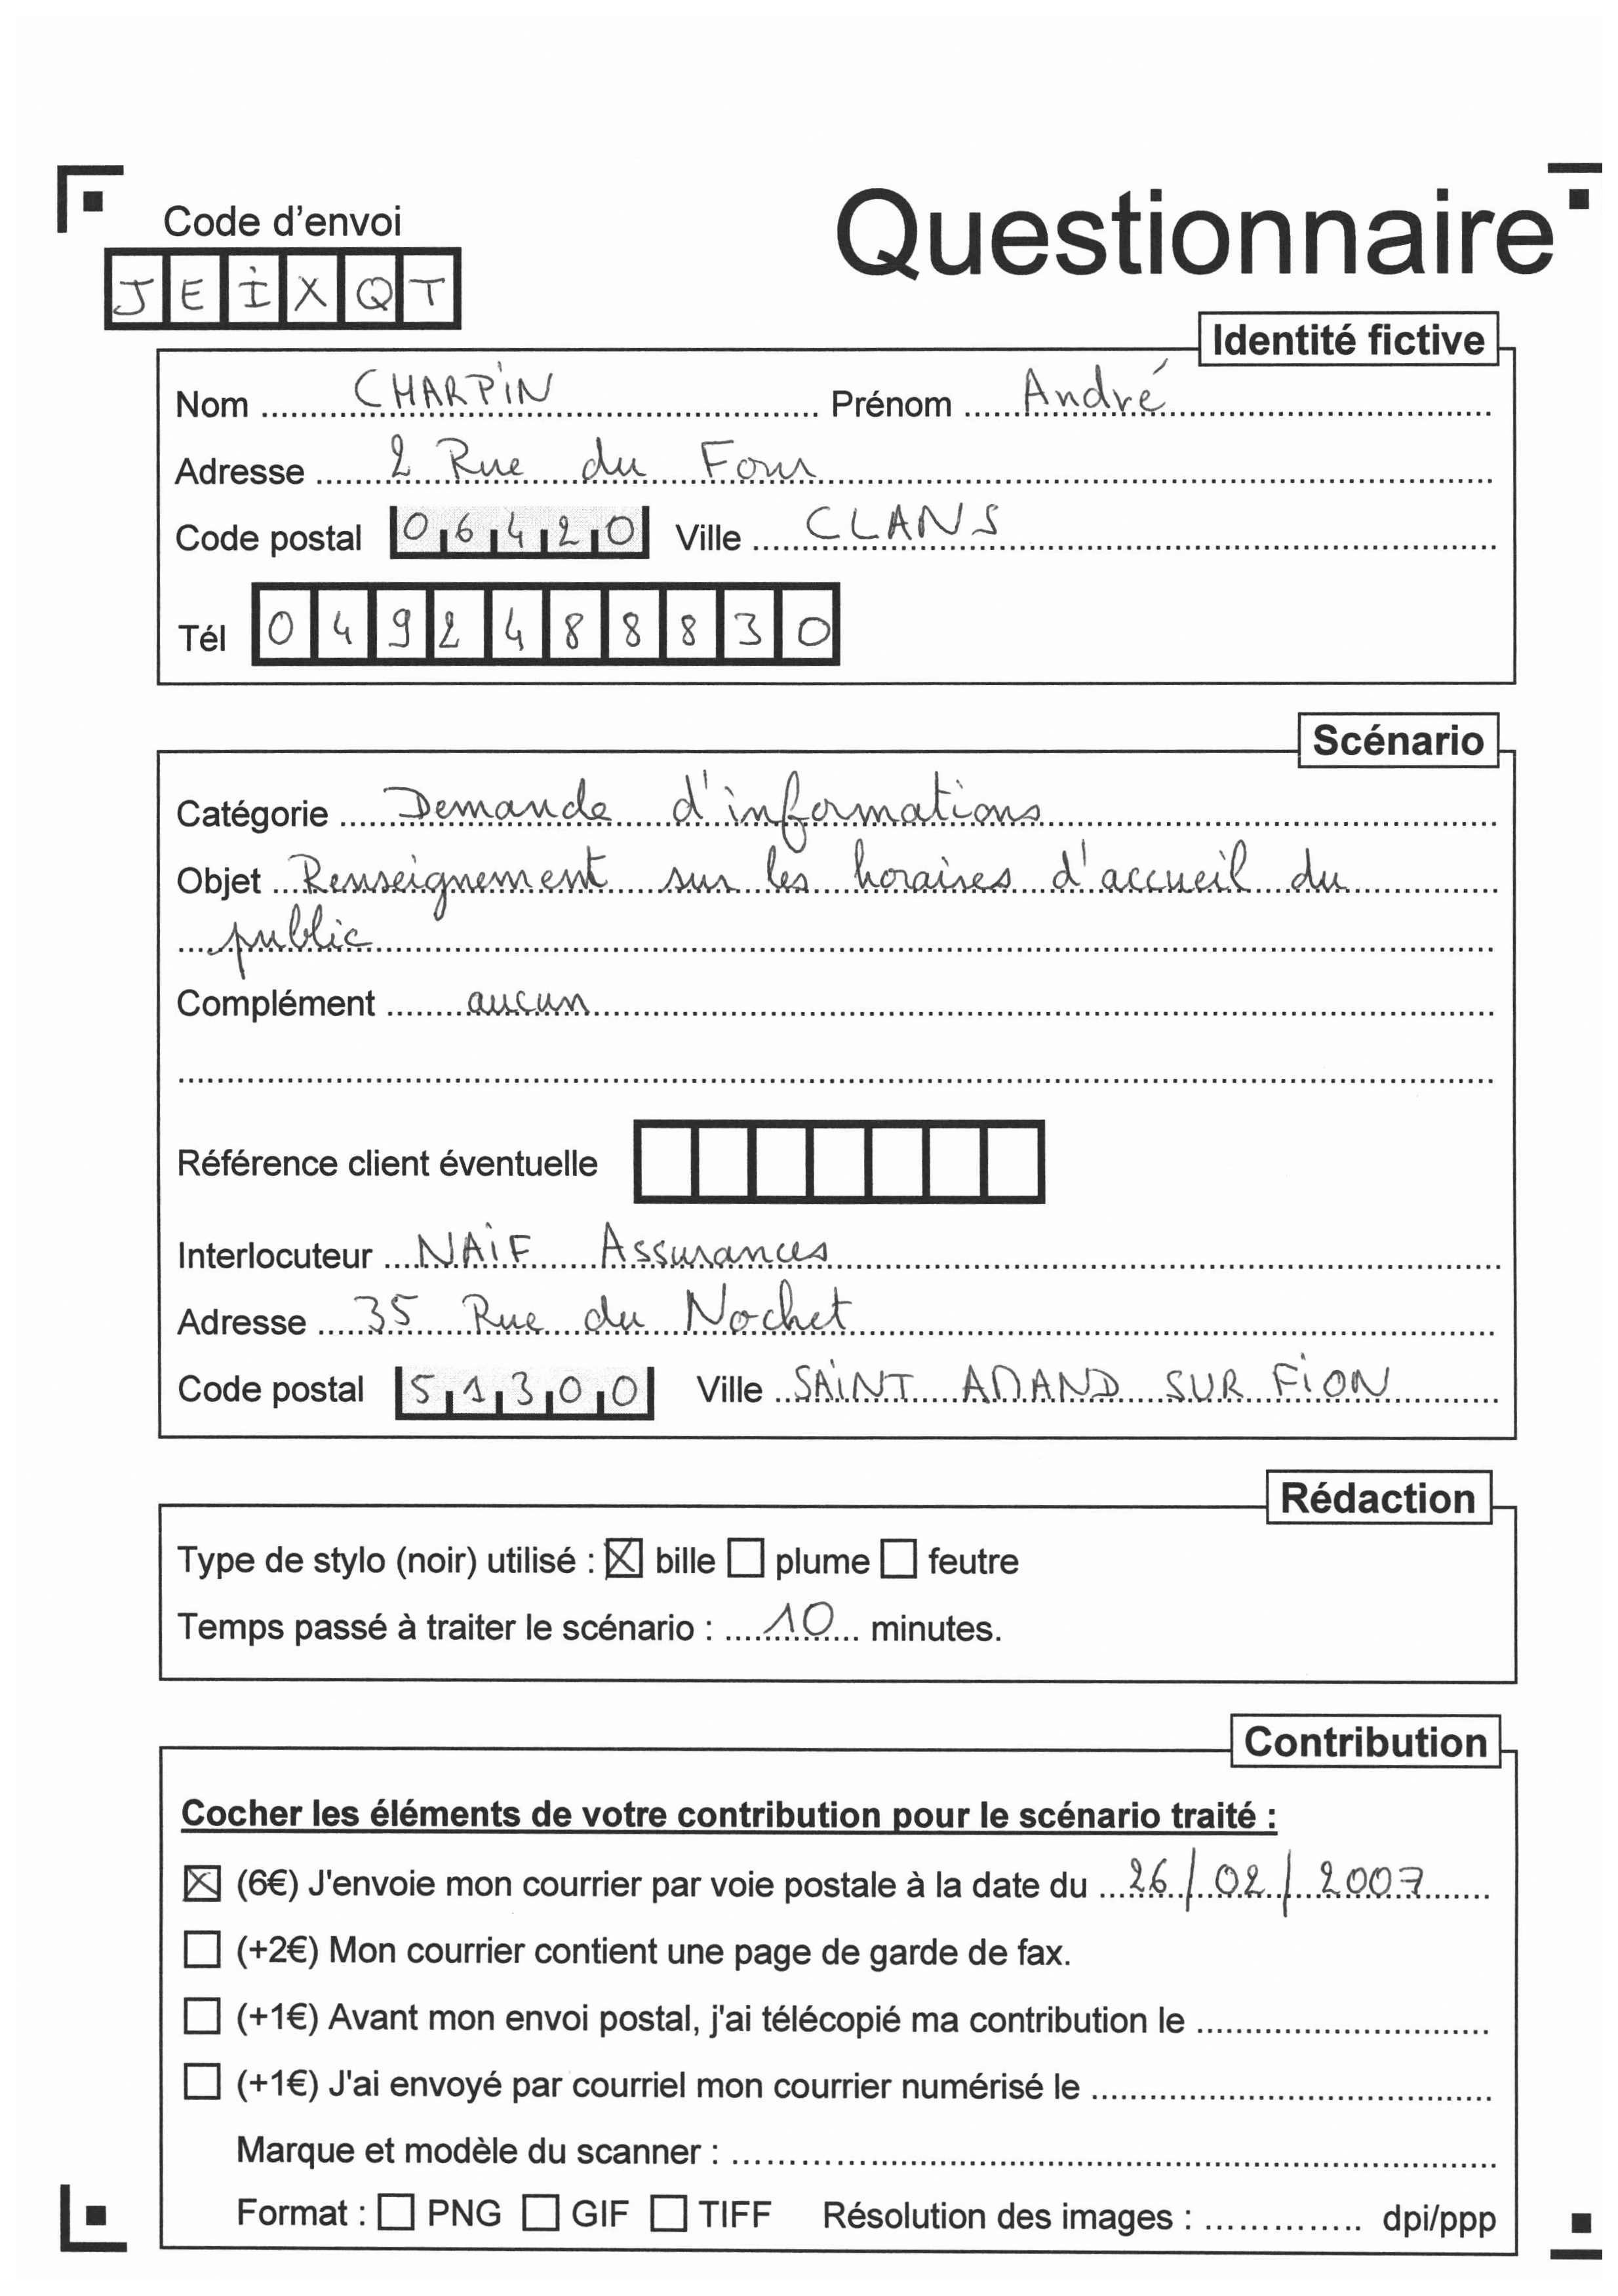 Questionnaire
Code d'envoi
JEIXQT
Identité fictive
Nom CHARPIN Prénom André
Adresse 2 Rue du Four
Code postal 06420 Ville CLANS
Tél 0492488830
Scénario
Catégorie Demande d'informations
Objet Renseignement sur les horaires d'accueil du
public
Complément aucun
Référence client éventuelle
Interlocuteur NAIF Assurances
Adresse 35 Rue du Nochet
Code postal 51300 Ville SAINT AMAND SUR FION
Rédaction
Type de stylo (noir) utilisé : ☒ bille ☐ plume ☐ feutre
Temps passé à traiter le scénario : 10 minutes.
Contribution
Cocher les éléments de votre contribution pour le scénario traité :
☒ (6€) J'envoie mon courrier par voie postale à la date du 26/02/2007
☐ (+2€) Mon courrier contient une page de garde de fax.
☐ (+1€) Avant mon envoi postal, j'ai télécopié ma contribution le
☐ (+1€) J'ai envoyé par courriel mon courrier numérisé le
Marque et modèle du scanner :
Format : ☐ PNG ☐ GIF ☐ TIFF Résolution des images : dpi/ppp